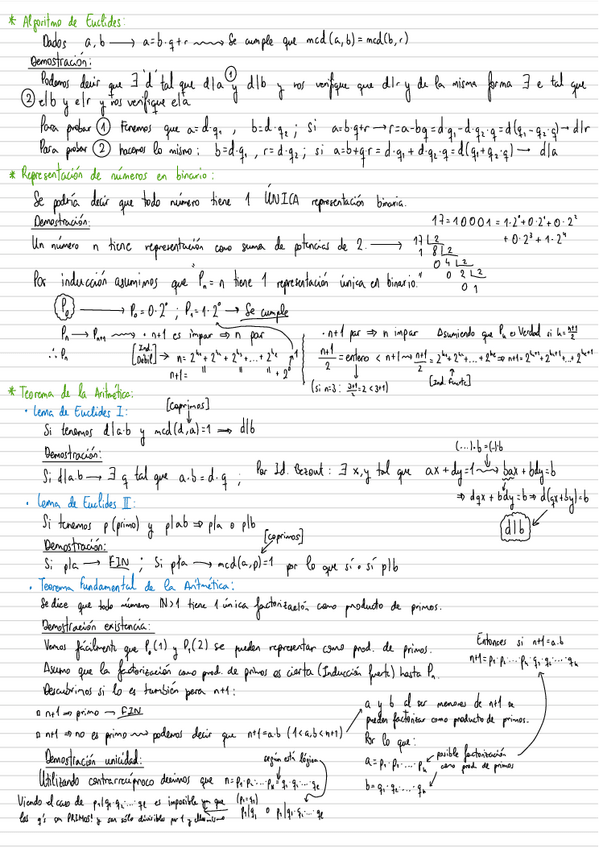 * Algoritmo de Euclides:
Dados a, b → a = b·q + r ⇝ Se cumple que mcd(a,b) = mcd(b,r)
Demostración:
Podemos decir que ∃ 'd' tal que d|a ① y d|b y nos verifique que d|r y de la misma forma ∃ e tal que
② e|b y e|r y nos verifique e|a
Para probar ① Tenemos que a = d·q₁ , b = d·q₂ ; si a = b·q + r → r = a - bq = d·q₁ - d·q₂·q = d(q₁ - q₂·q) → d|r
Para probar ② hacemos lo mismo: b = d·q₁ , r = d·q₂ ; si a = b+q·r = d·q₁ + d·q₂·q = d(q₁ + q₂·q) → d|a
* Representación de números en binario:
Se podría decir que todo número tiene 1 ÚNICA representación binaria.
Demostración:
17 = 10001 = 1·2⁰ + 0·2¹ + 0·2²
+ 0·2³ + 1·2⁴
Un número n tiene representación como suma de potencias de 2. →
17 |2
1 8 |2
0 4 |2
0 2 |2
0 1
Por inducción asumimos que "Pₙ = n tiene 1 representación única en binario."
P₀ → P₀ = 0·2⁰ ; P₁ = 1·2⁰ → Se cumple
Pₙ → Pₙ₊₁ ⇝ · n+1 es impar ⇒ n par
∴ Pₙ [Ind. Débil] → n = 2^k₁ + 2^k₂ + 2^k₃ + ... + 2^kₑ
n+1 = " " " + 2⁰
· n+1 par ⇒ n impar Asumiendo que Pₖ es Verdad si k = n+1/2
n+1/2 = entero < n+1 ⇝ n+1/2 = 2^k₁ + 2^k₂ + ... + 2^kₑ ⇒ n+1 = 2^k₁₊₁ + 2^k₂₊₁ + .. + 2^kₑ₊₁
(si n=3 : 3+1/2 = 2 < 3+1) [Ind. Fuerte]
* Teorema de la Aritmética:
· Lema de Euclides I:
[coprimos]
Si tenemos d|a·b y mcd(d,a) = 1 ⇒ d|b
Demostración:
(...)·b = (..)·b
Si d|a·b → ∃ q tal que a·b = d·q ; Por Id. Bezout: ∃ x, y tal que ax + dy = 1 ⇝ bax + bdy = b
⇒ dqx + bdy = b ⇒ d(qx + by) = b
d|b
· Lema de Euclides II:
Si tenemos p (primo) y p|ab ⇒ p|a o p|b
[coprimos]
Demostración:
Si p|a → FIN ; Si p∤a → mcd(a,p) = 1 por lo que sí o sí p|b
· Teorema Fundamental de la Aritmética:
Se dice que todo número N>1 tiene 1 única factorización como producto de primos.
Demostración existencia:
Vemos fácilmente que P₀(1) y P₁(2) se pueden representar como prod. de primos.
Asumo que la factorización como prod. de primos es cierta (Inducción fuerte) hasta Pₙ.
Descubrimos si lo es también para n+1:
▫ n+1 ⇒ primo → FIN
▫ n+1 ⇒ no es primo ⇝ podemos decir que n+1 = a·b (1<a,b<n+1)
a y b al ser menores de n+1 se
pueden factorizar como producto de primos.
Por lo que:
a = p₁·p₂·...·pₖ
b = q₁·q₂·...·qₖ
posible factorización
como prod. de primos
Entonces si n+1 = a·b
n+1 = p₁·p₂·...·pₖ·q₁·q₂·...·qₖ
Demostración unicidad:
según está lógica
Utilizando contrarrecíproco decimos que n = p₁·p₂·...·pₖ = q₁·q₂·...·qₑ
Viendo el caso de p₁|q₁·q₂·...·qₑ es imposible ya que
los q's son PRIMOS! y son sólo divisibles por 1 y ellos mismo
(p₁=q₁)
p₁|q₁ o p₁|q₂·q₃·...·qₑ